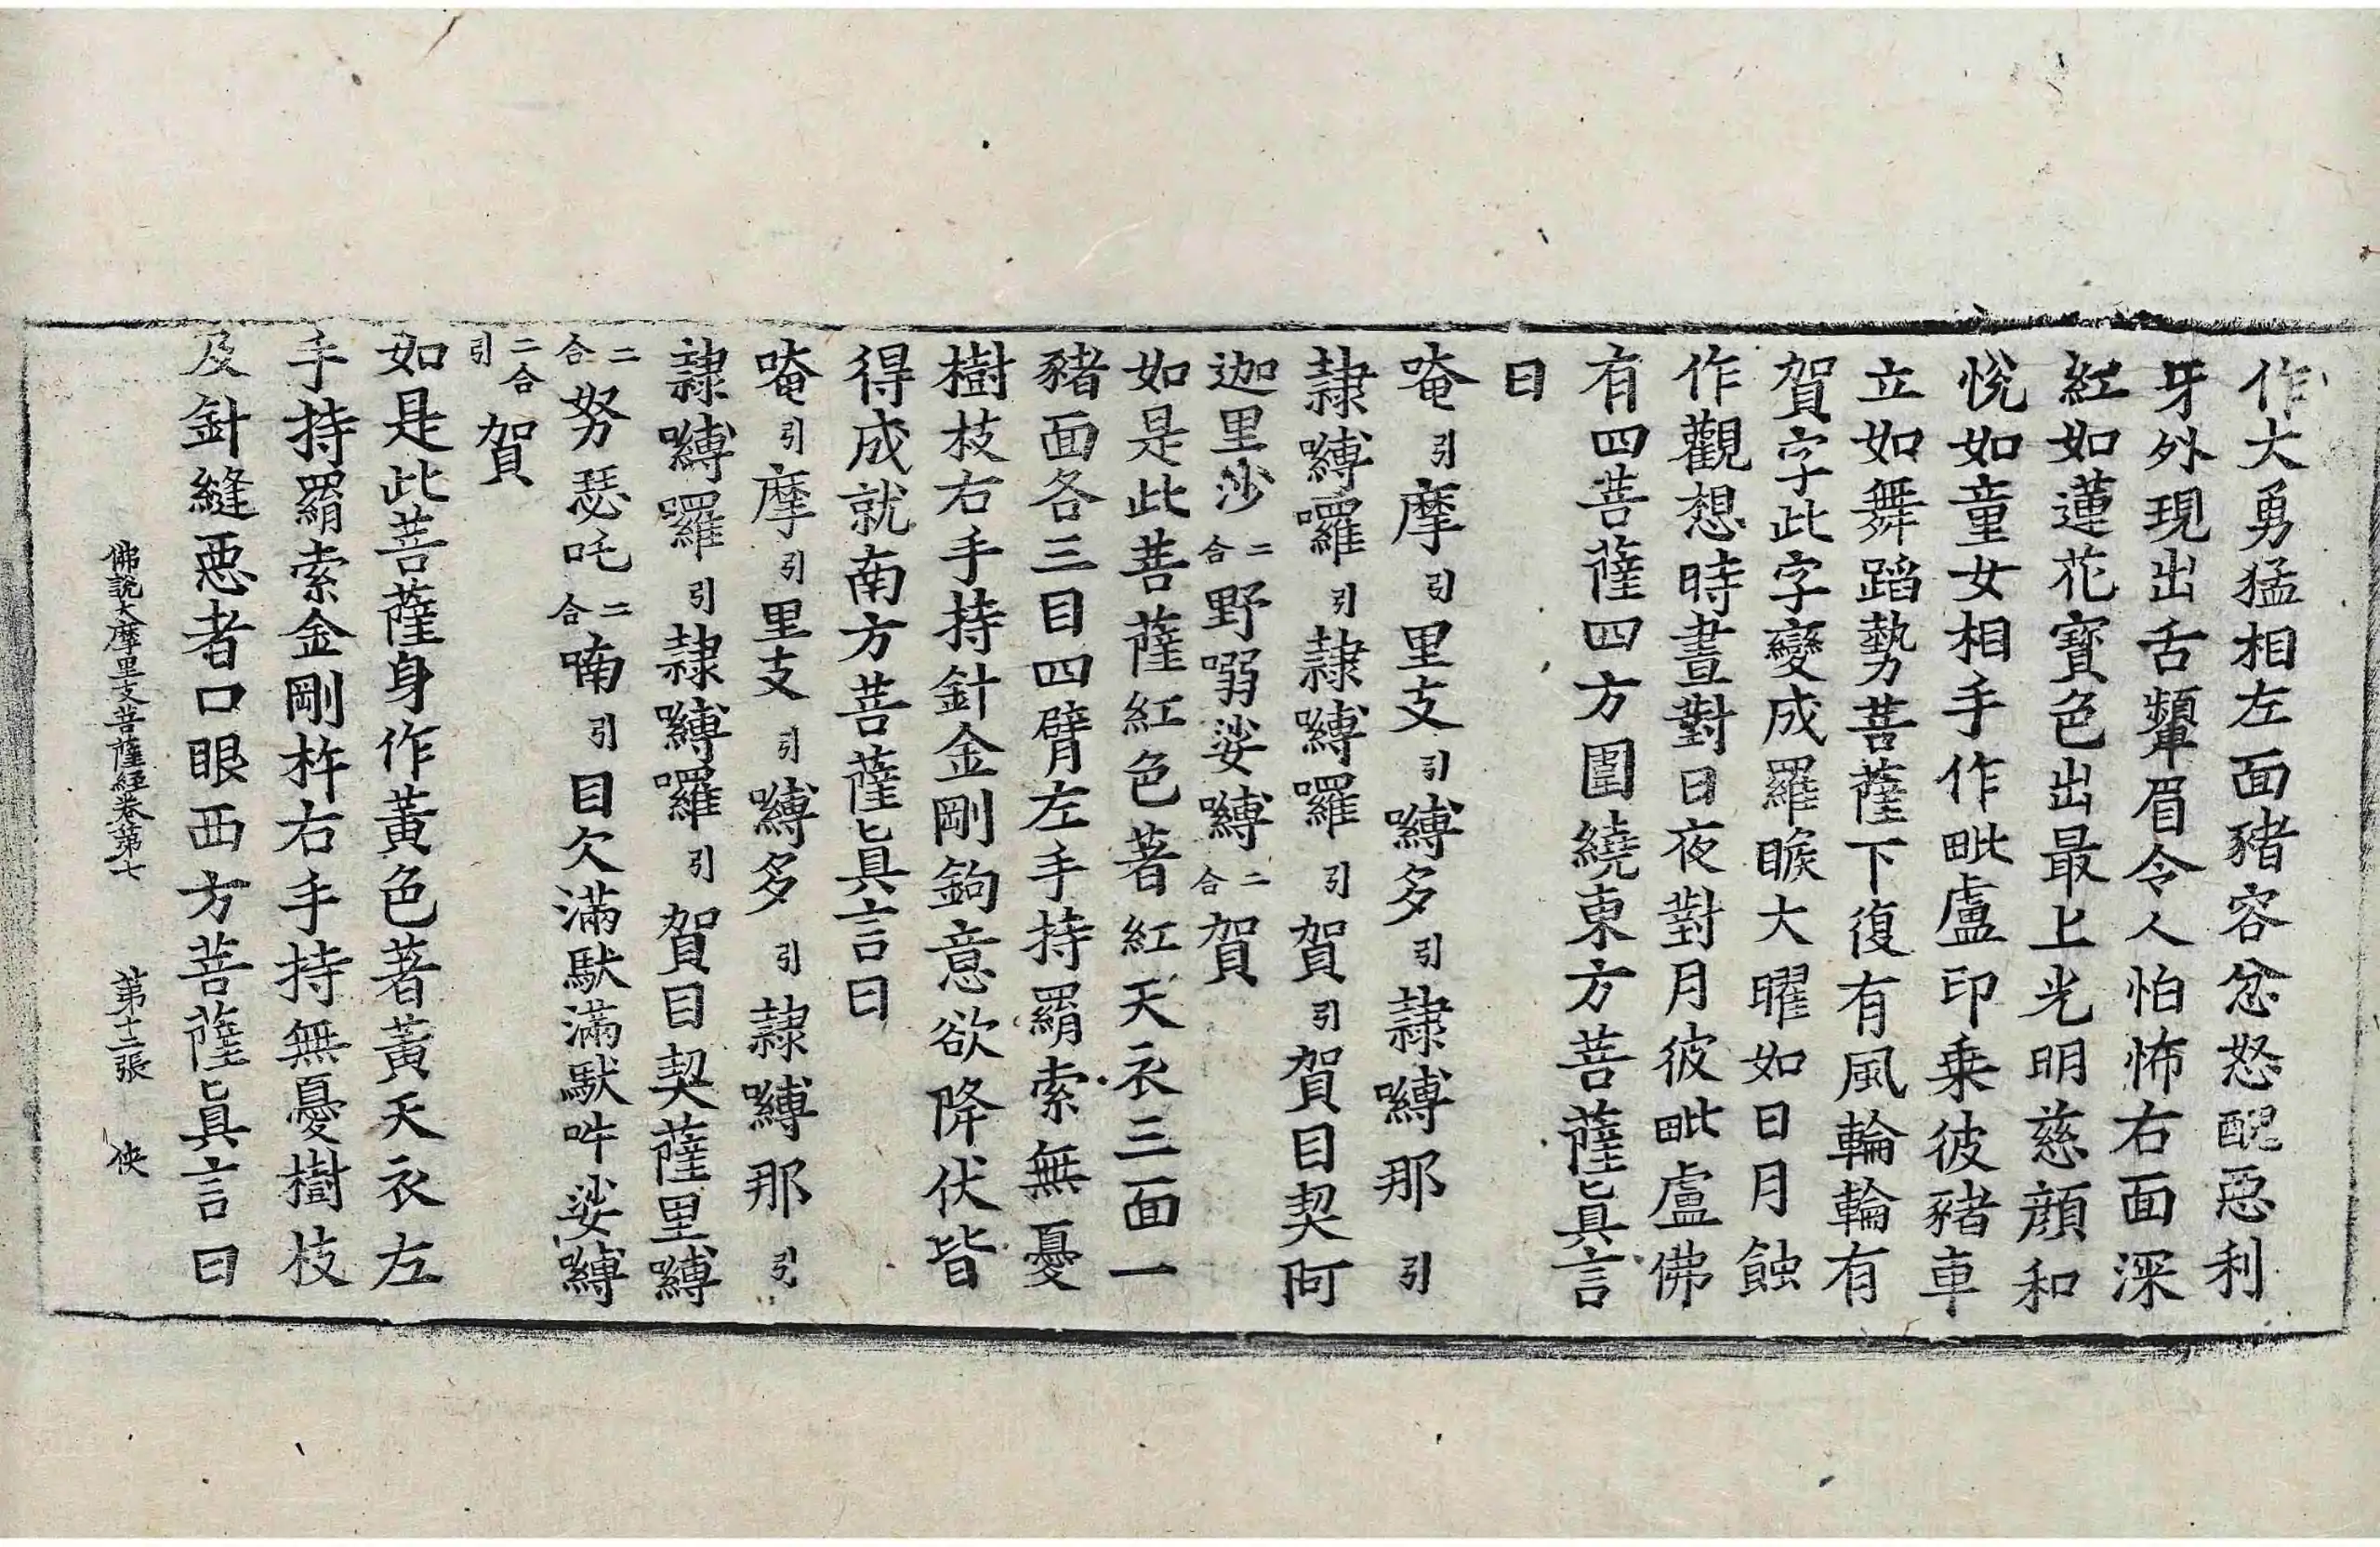 作大勇猛相左面豬容忿怒醜惡利
牙外現出舌顰眉令人怕怖右面深
紅如蓮花寶色出最上光明慈顔和
悅如童女相手作毗盧印乗彼豬車
立如舞蹈勢菩薩下復有風輪輪有
賀字此字變成羅睺大曜如日月蝕
作觀想時晝對日夜對月彼毗盧佛
有四菩薩四方圍繞東方菩薩眞言
曰
唵引摩引里支引嚩多引隷嚩那引
隷嚩囉引隷嚩囉引賀引賀目契阿
迦里沙二合野嗍娑嚩二合賀
如是此菩薩紅色著紅天衣三面一
豬面各三目四臂左手持羂索無憂
樹枝右手持針金剛鉤意欲降伏皆
得成就南方菩薩眞言曰
唵引摩引里支引嚩多引隷嚩那引
隷嚩囉引隷嚩囉引賀目契薩里嚩
二合努瑟吒二合喃引目欠滿馱滿馱吽娑嚩
二合引賀
如是此菩薩身作黃色著黃天衣左
手持羂索金剛杵右手持無憂樹枝
及針縫惡者口眼西方菩薩眞言曰
佛說大摩里支菩薩經卷第七 第十二張 俠